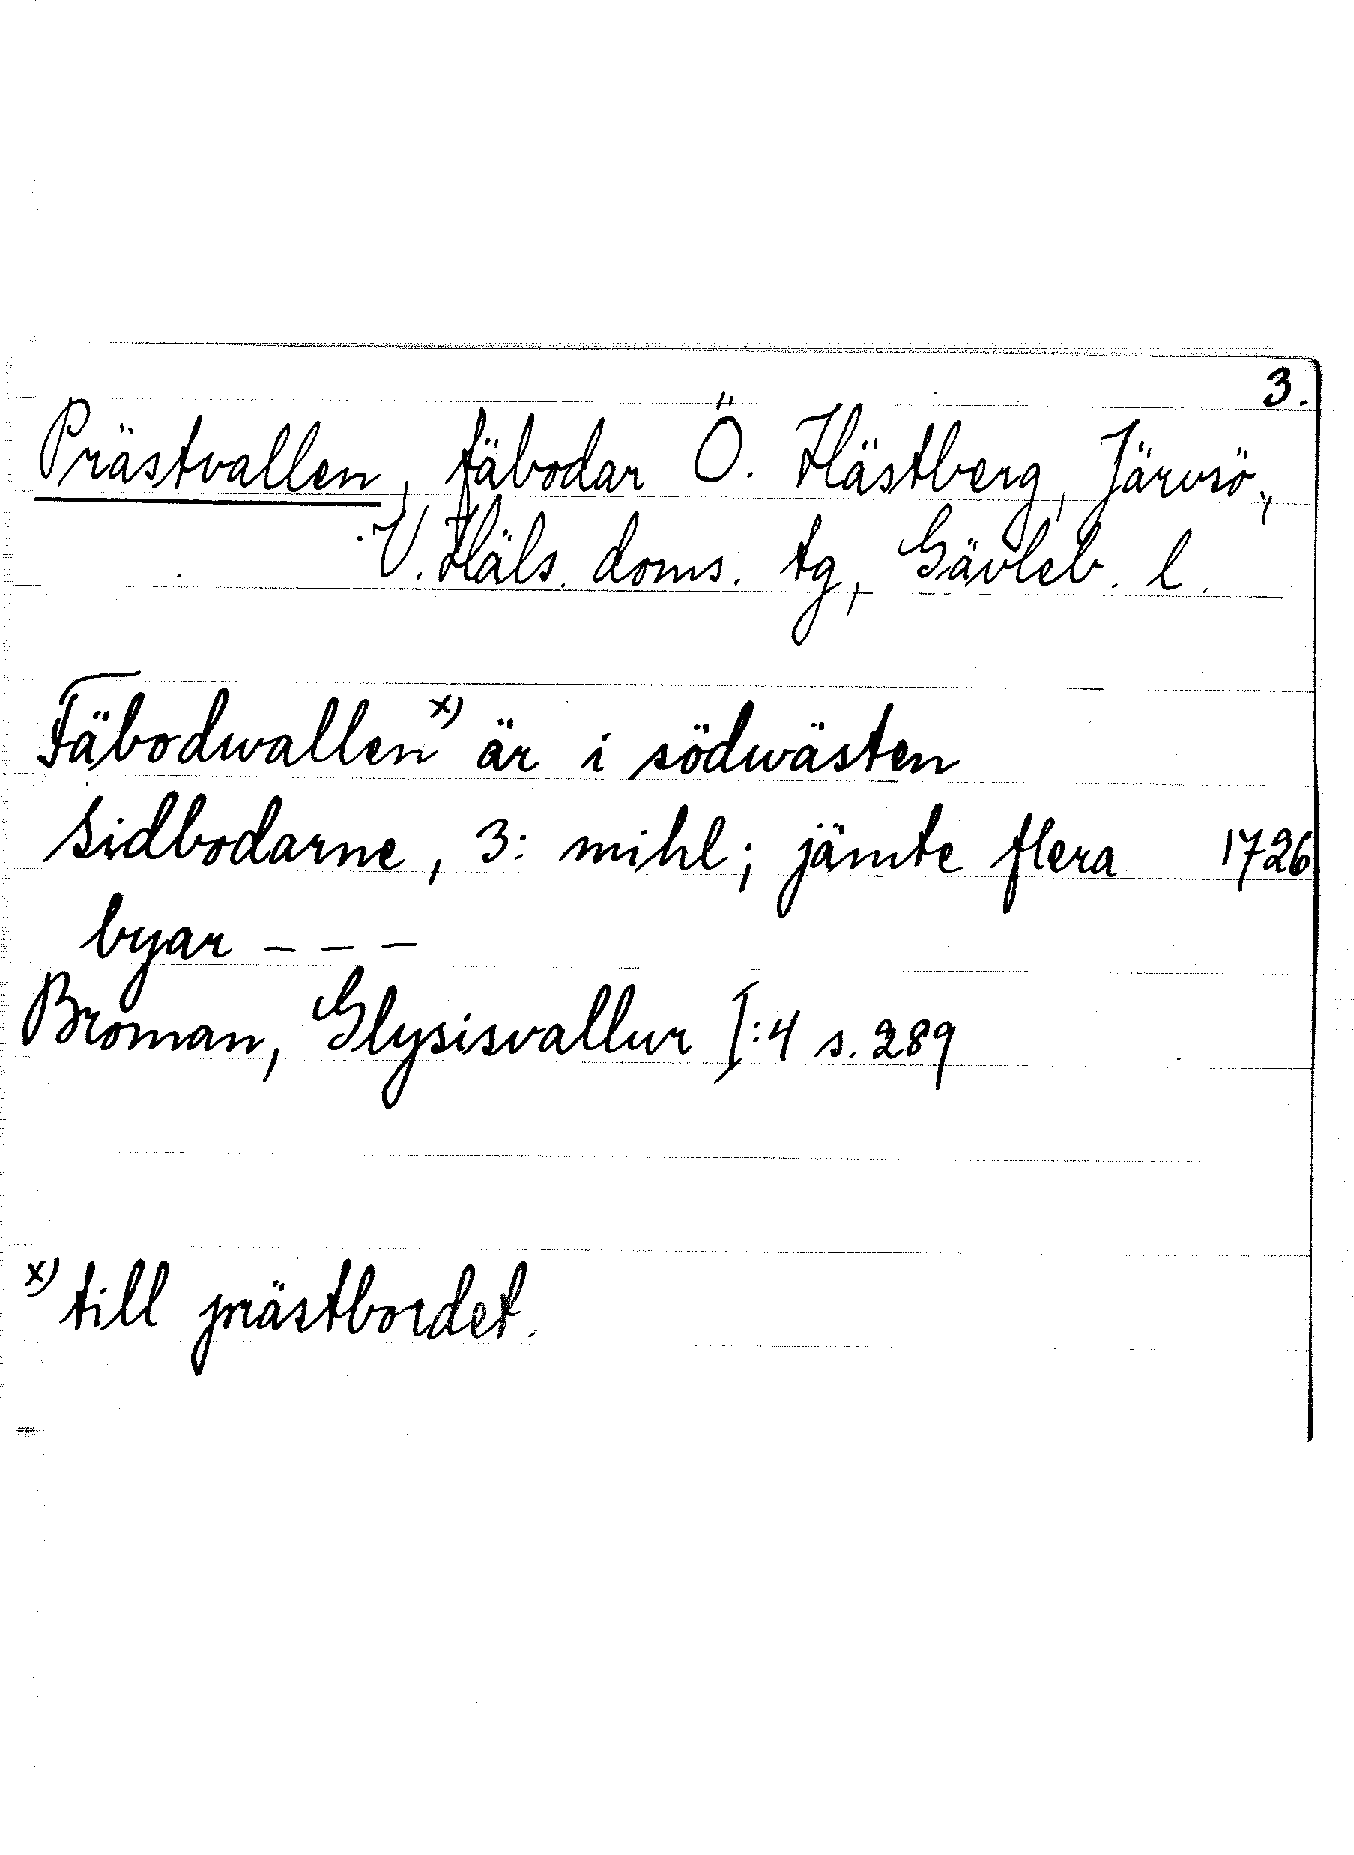 3.
Prästvallen, fäbodar Ö. Hästberg, Järvsö,
V. Häls. doms. tg, Gävleb. l.
Fäbodwallen x) är i södwästen
Sidbodarne, 3: mihl; jämte flera 1726
byar – – –
Broman, Glysisvallur I:4 s. 289
x) till prästbordet.